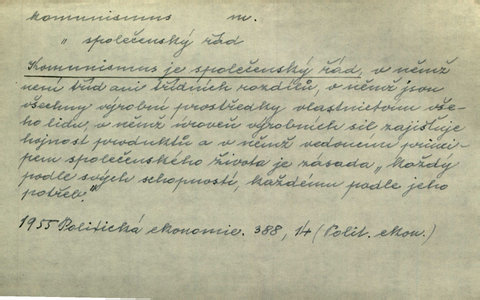 komunismus m.
" společenský řád
Komunismus je společenský řád, v němž
není tříd ani třídních rozdílů, v němž jsou
všechny výrobní prostředky vlastnictvím vše-
ho lidu, v němž úroveň výrobních sil zajišťuje
hojnost produktů a v němž vedoucím princi-
pem společenského života je zásada „každý
podle svých schopností, každému podle jeho
potřeb."
1955 Politická ekonomie. 388, 14 (Polit. ekon.)